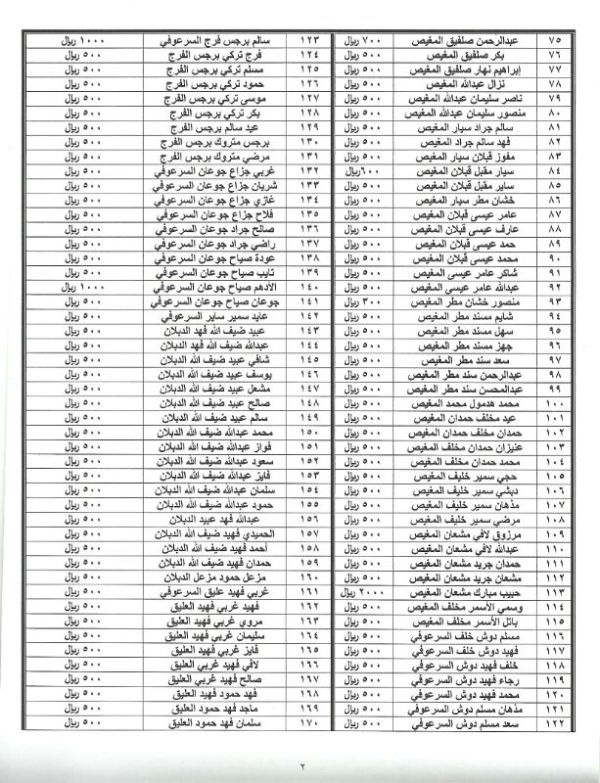 ٧٥ عبدالرحمن صلفيق المغيص ٧٠٠ ريال
٧٦ بكر صلفيق المغيص ٥٠٠ ريال
٧٧ إبراهيم نهار صلفيق المغيص ٥٠٠ ريال
٧٨ نزال عبدالله المغيص ٥٠٠ ريال
٧٩ ناصر سليمان عبدالله المغيص ٥٠٠ ريال
٨٠ منصور سليمان عبدالله المغيص ٥٠٠ ريال
٨١ سالم جراد سيار المغيص ٥٠٠ ريال
٨٢ فهد سالم جراد المغيص ٥٠٠ ريال
٨٣ مفوز قبلان سيار المغيص ٥٠٠ ريال
٨٤ سيار مقبل قبلان المغيص ٦٠٠ ريال
٨٥ ساير مقبل قبلان المغيص ٥٠٠ ريال
٨٦ خشان مطر سيار المغيص ٥٠٠ ريال
٨٧ عامر عيسى قبلان المغيص ٥٠٠ ريال
٨٨ عارف عيسى قبلان المغيص ٥٠٠ ريال
٨٩ حمد عيسى قبلان المغيص ٥٠٠ ريال
٩٠ محمد عيسى قبلان المغيص ٥٠٠ ريال
٩١ شاكر عامر عيسى المغيص ٥٠٠ ريال
٩٢ عبدالله عامر عيسى المغيص ٥٠٠ ريال
٩٣ منصور خشان مطر المغيص ٣٠٠ ريال
٩٤ شايم مسند مطر المغيص ٥٠٠ ريال
٩٥ سهل مسند مطر المغيص ٥٠٠ ريال
٩٦ جهز مسند مطر المغيص ٥٠٠ ريال
٩٧ سعد سند مطر المغيص ٥٠٠ ريال
٩٨ عبدالرحمن سند مطر المغيص ٥٠٠ ريال
٩٩ عبدالمحسن سند مطر المغيص ٥٠٠ ريال
١٠٠ محمد هدمول محمد المغيص ٥٠٠ ريال
١٠١ عيد مخلف حمدان المغيص ٥٠٠ ريال
١٠٢ حمدان مخلف حمدان المغيص ٥٠٠ ريال
١٠٣ عنيزان حمدان مخلف المغيص ٥٠٠ ريال
١٠٤ محمد حمدان مخلف المغيص ٥٠٠ ريال
١٠٥ حجي سمير خليف المغيص ٥٠٠ ريال
١٠٦ دبشي سمير خليف المغيص ٥٠٠ ريال
١٠٧ مذهان سمير خليف المغيص ٥٠٠ ريال
١٠٨ مرضي سمير خليف المغيص ٥٠٠ ريال
١٠٩ مرزوق لافي مشعان المغيص ٥٠٠ ريال
١١٠ عبدالله لافي مشعان المغيص ٥٠٠ ريال
١١١ حمدان جريد مشعان المغيص ٥٠٠ ريال
١١٢ مشعان جريد مشعان المغيص ٥٠٠ ريال
١١٣ حبيب مبارك مشعان المغيص ٢٠٠٠ ريال
١١٤ وسمي الأسمر مخلف المغيص ٥٠٠ ريال
١١٥ باتل الأسمر مخلف المغيص ٥٠٠ ريال
١١٦ مسلم دوش خلف السرعوفي ٥٠٠ ريال
١١٧ فهيد دوش خلف السرعوفي ٥٠٠ ريال
١١٨ خلف فهيد دوش السرعوفي ٥٠٠ ريال
١١٩ رجاء فهيد دوش السرعوفي ٥٠٠ ريال
١٢٠ محمد فهيد دوش السرعوفي ٥٠٠ ريال
١٢١ مذهان مسلم دوش السرعوفي ٥٠٠ ريال
١٢٢ سعد مسلم دوش السرعوفي ٥٠٠ ريال
١٢٣ سالم برجس فرج السرعوفي ١٠٠٠ ريال
١٢٤ فرج تركي برجس الفرج ٥٠٠ ريال
١٢٥ مسلم تركي برجس الفرج ٥٠٠ ريال
١٢٦ حمود تركي برجس الفرج ٥٠٠ ريال
١٢٧ موسى تركي برجس الفرج ٥٠٠ ريال
١٢٨ بكر تركي برجس الفرج ٥٠٠ ريال
١٢٩ عيد سالم برجس الفرج ٥٠٠ ريال
١٣٠ برجس متروك برجس الفرج ٥٠٠ ريال
١٣١ مرضي متروك برجس الفرج ٥٠٠ ريال
١٣٢ غربي جزاع جوعان السرعوفي ٥٠٠ ريال
١٣٣ شريان جزاع جوعان السرعوفي ٥٠٠ ريال
١٣٤ غازي جزاع جوعان السرعوفي ٥٠٠ ريال
١٣٥ فلاح جزاع جوعان السرعوفي ٥٠٠ ريال
١٣٦ صالح جراد جوعان السرعوفي ٥٠٠ ريال
١٣٧ راضي جراد جوعان السرعوفي ٥٠٠ ريال
١٣٨ عودة صياح جوعان السرعوفي ٥٠٠ ريال
١٣٩ تايب صياح جوعان السرعوفي ٥٠٠ ريال
١٤٠ الأدهم صياح جوعان السرعوفي ١٠٠٠ ريال
١٤١ جوعان صياح جوعان السرعوفي ٥٠٠ ريال
١٤٢ عايد سمير ساير السرعوفي ٥٠٠ ريال
١٤٣ عبيد ضيف الله فهد الدبلان ٥٠٠ ريال
١٤٤ عبدالله ضيف الله فهد الدبلان ٥٠٠ ريال
١٤٥ شافي عبيد ضيف الله الدبلان ٥٠٠ ريال
١٤٦ يوسف عبيد ضيف الله الدبلان ٥٠٠ ريال
١٤٧ مشعل عبيد ضيف الله الدبلان ٥٠٠ ريال
١٤٨ صالح عبيد ضيف الله الدبلان ٥٠٠ ريال
١٤٩ سالم عبيد ضيف الله الدبلان ٥٠٠ ريال
١٥٠ محمد عبدالله ضيف الله الدبلان ٥٠٠ ريال
١٥١ فواز عبدالله ضيف الله الدبلان ٥٠٠ ريال
١٥٢ سعود عبدالله ضيف الله الدبلان ٥٠٠ ريال
١٥٣ فايز عبدالله ضيف الله الدبلان ٥٠٠ ريال
١٥٤ سلمان عبدالله ضيف الله الدبلان ٥٠٠ ريال
١٥٥ حمود عبدالله ضيف الله الدبلان ٥٠٠ ريال
١٥٦ عبدالله فهد عبيد الدبلان ٥٠٠ ريال
١٥٧ الحميدي فهيد ضيف الله الدبلان ٥٠٠ ريال
١٥٨ أحمد فهيد ضيف الله الدبلان ٥٠٠ ريال
١٥٩ حمدان فهيد ضيف الله الدبلان ٥٠٠ ريال
١٦٠ مزعل حمود مزعل الدبلان ٥٠٠ ريال
١٦١ غربي فهيد عليق السرعوفي ٥٠٠ ريال
١٦٢ فهيد غربي فهيد العليق ٥٠٠ ريال
١٦٣ مروي غربي فهيد العليق ٥٠٠ ريال
١٦٤ سليمان غربي فهيد العليق ٥٠٠ ريال
١٦٥ فايز غربي فهيد العليق ٥٠٠ ريال
١٦٦ لافي فهيد غربي العليق ٥٠٠ ريال
١٦٧ صالح فهيد غربي العليق ٥٠٠ ريال
١٦٨ فهد حمود فهيد العليق ٥٠٠ ريال
١٦٩ ماجد فهد حمود العليق ٥٠٠ ريال
١٧٠ سلمان فهد حمود العليق ٥٠٠ ريال
٢